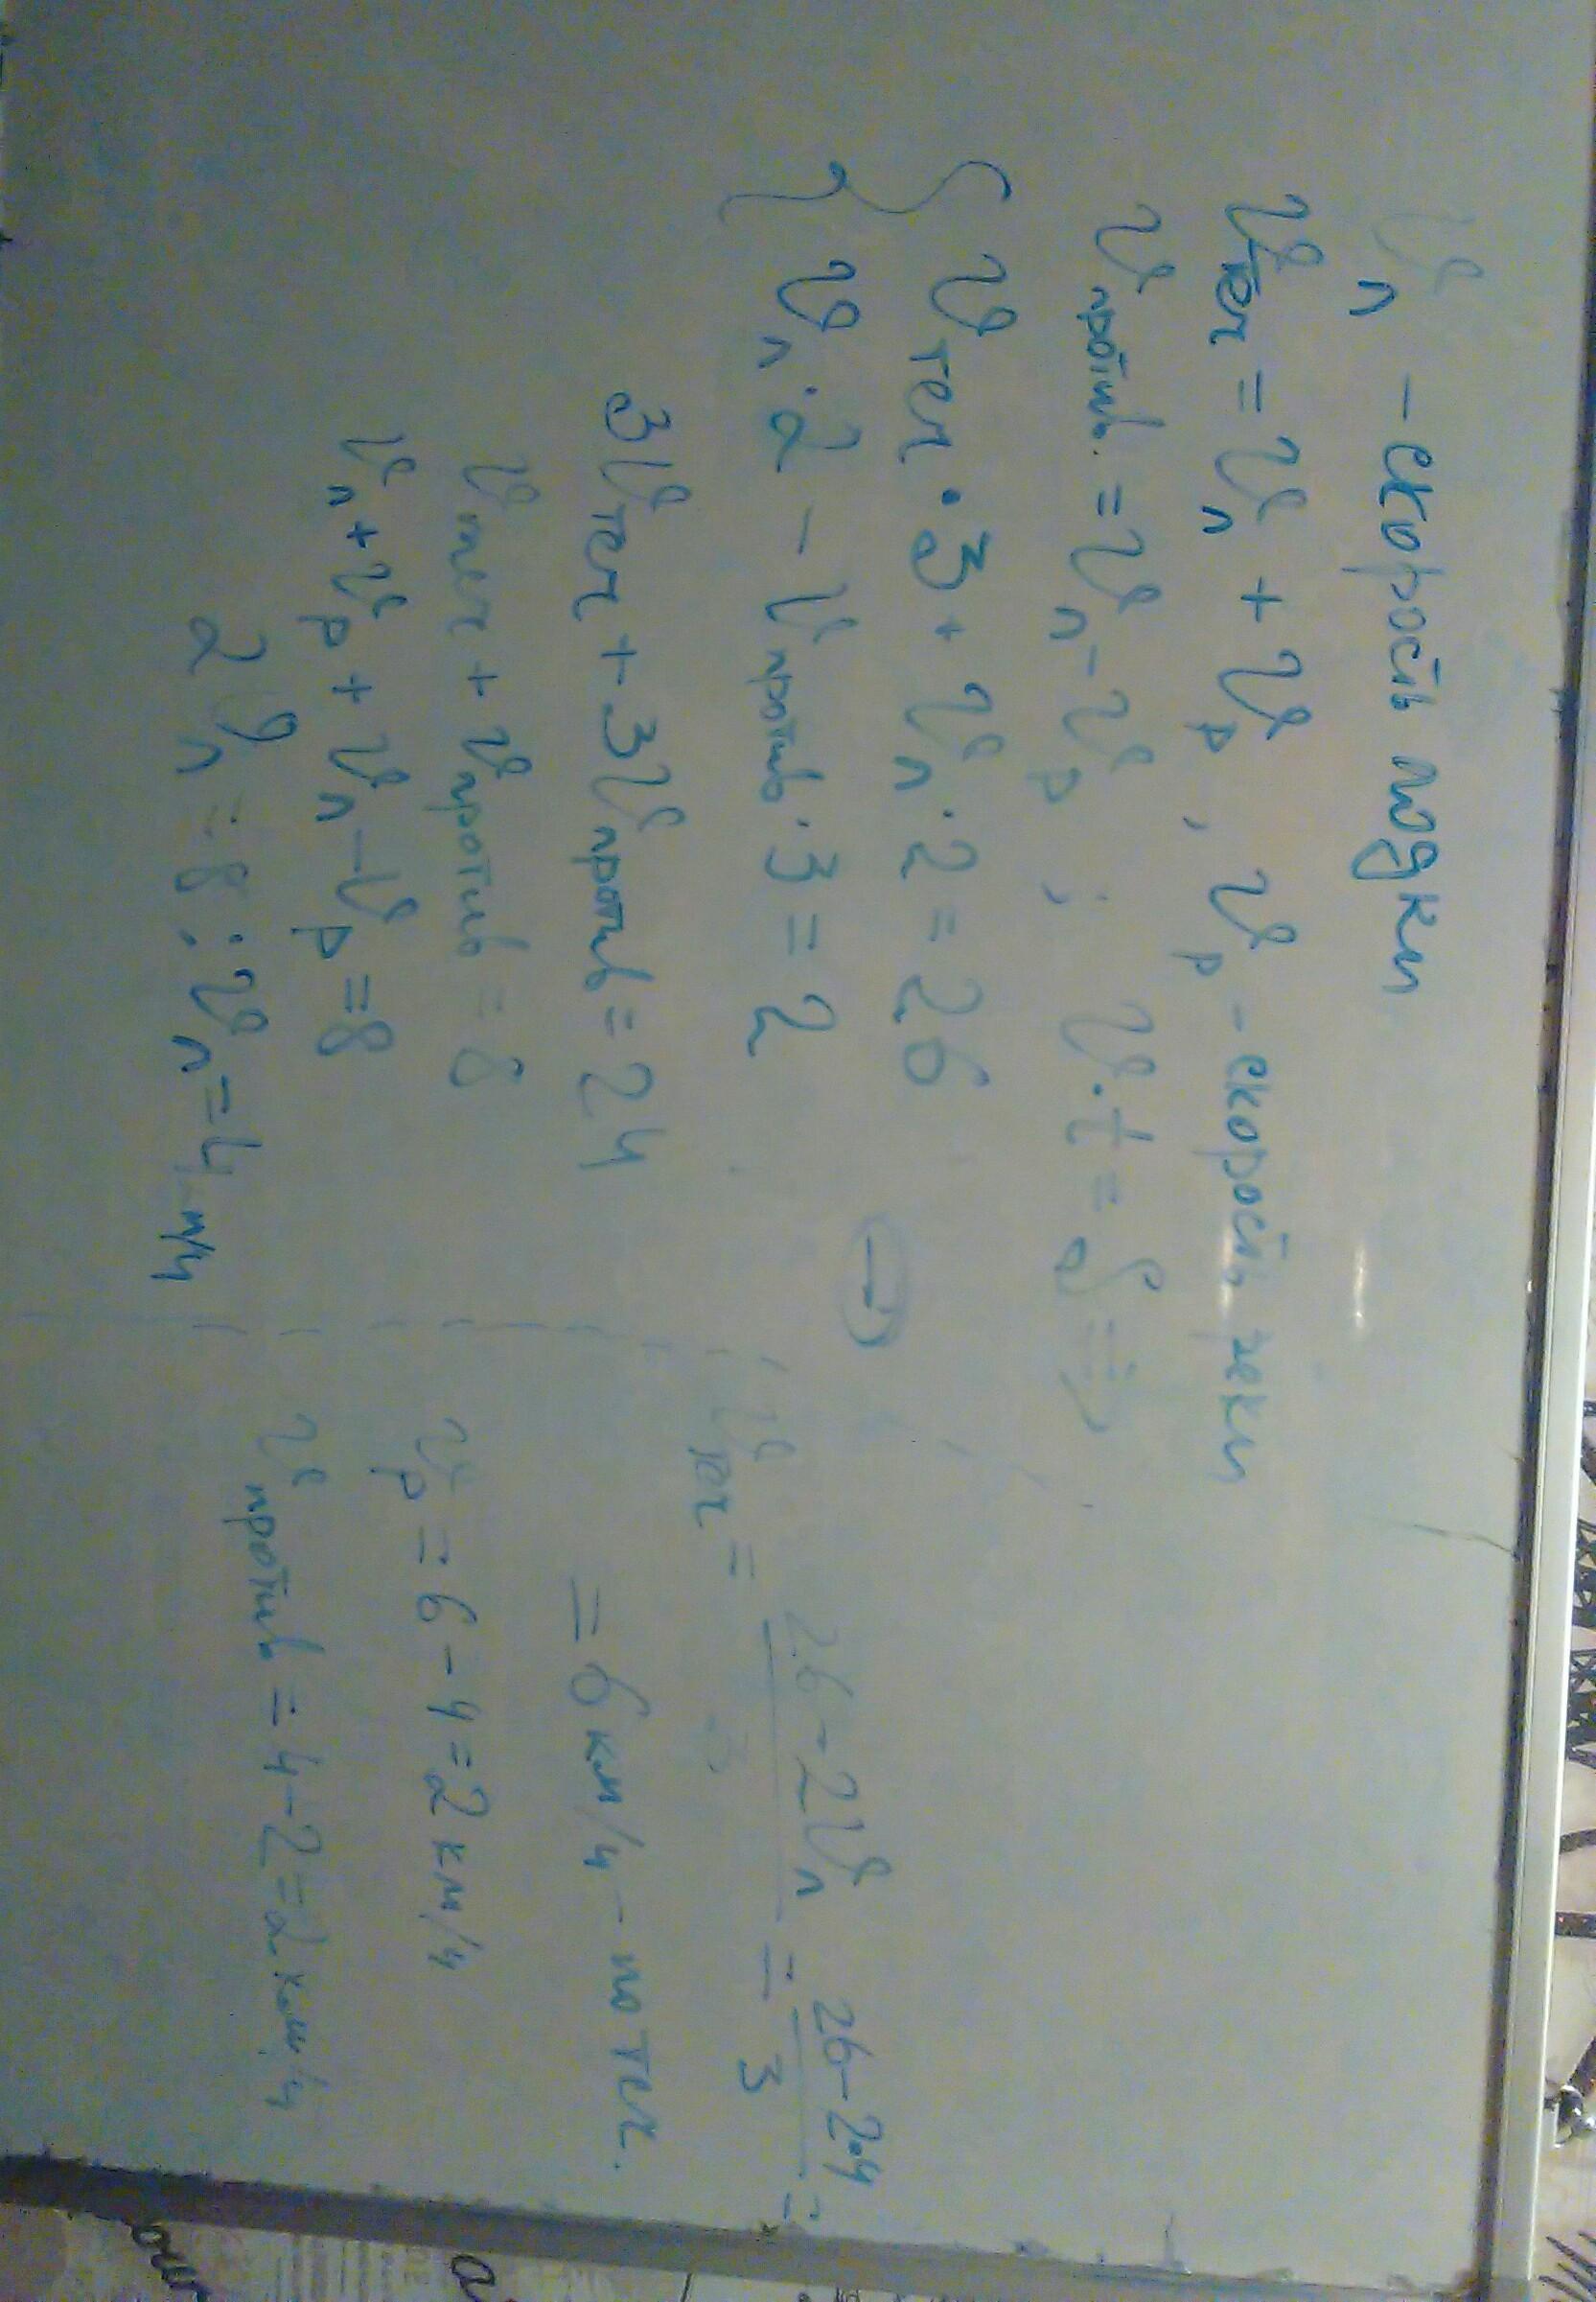 𝑣л - скорость лодки
𝑣теч = 𝑣л + 𝑣р, 𝑣р - скорость реки
𝑣против. = 𝑣л - 𝑣р; 𝑣·t = S ⇒
{ 𝑣теч · 3 + 𝑣л · 2 = 26
𝑣л · 2 - 𝑣против · 3 = 2
(-)
3𝑣теч + 3𝑣против = 24
𝑣теч + 𝑣против = 8
𝑣л + 𝑣р + 𝑣л - 𝑣р = 8
2𝑣л = 8; 𝑣л = 4 км/ч
𝑣теч = (26 - 2𝑣л)/3 = (26 - 2·4)/3 =
= 6 км/ч - по теч.
𝑣р = 6 - 4 = 2 км/ч
𝑣против = 4 - 2 = 2 км/ч